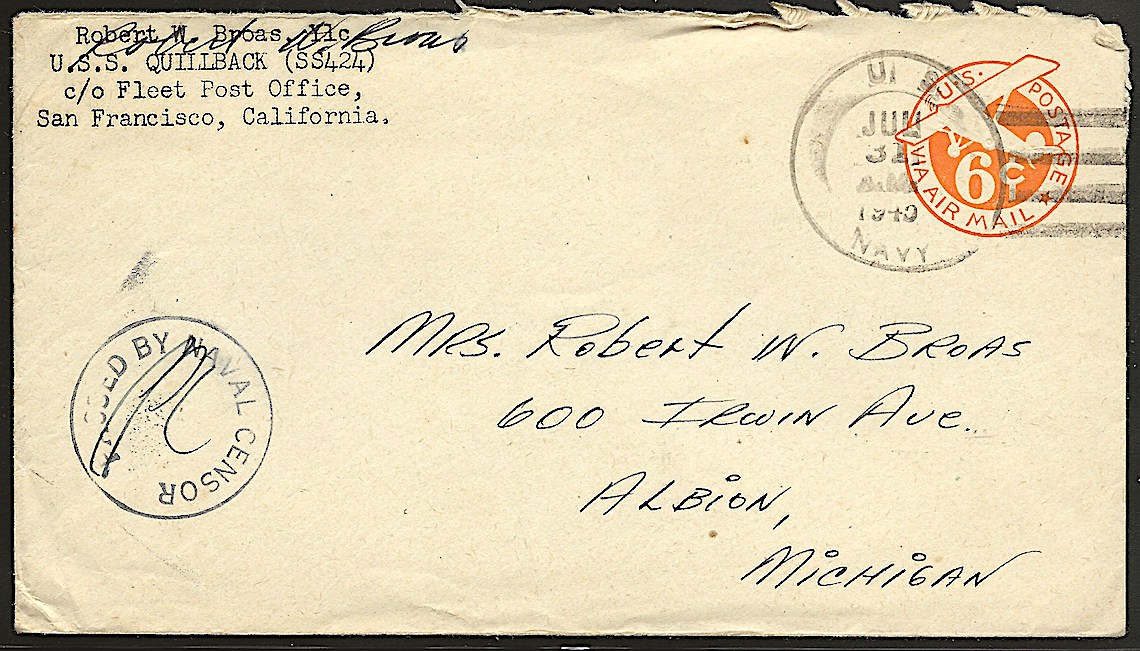 Robert W. Broas, Y1c
Robert W. Broas
U.S.S. QUILLBACK (SS424)
c/o Fleet Post Office,
San Francisco, California.
U. S.
JUL
31
A.M.
1945
NAVY
U.S. POSTAGE
6¢
VIA AIR MAIL
PASSED BY NAVAL CENSOR
Mrs. Robert W. Broas
600 Irwin Ave.
Albion,
Michigan